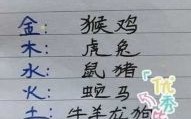 金： 猴鸡
木： 虎兔
水： 鼠猪
火： 蛇马
土： 牛羊龙狗
优秀